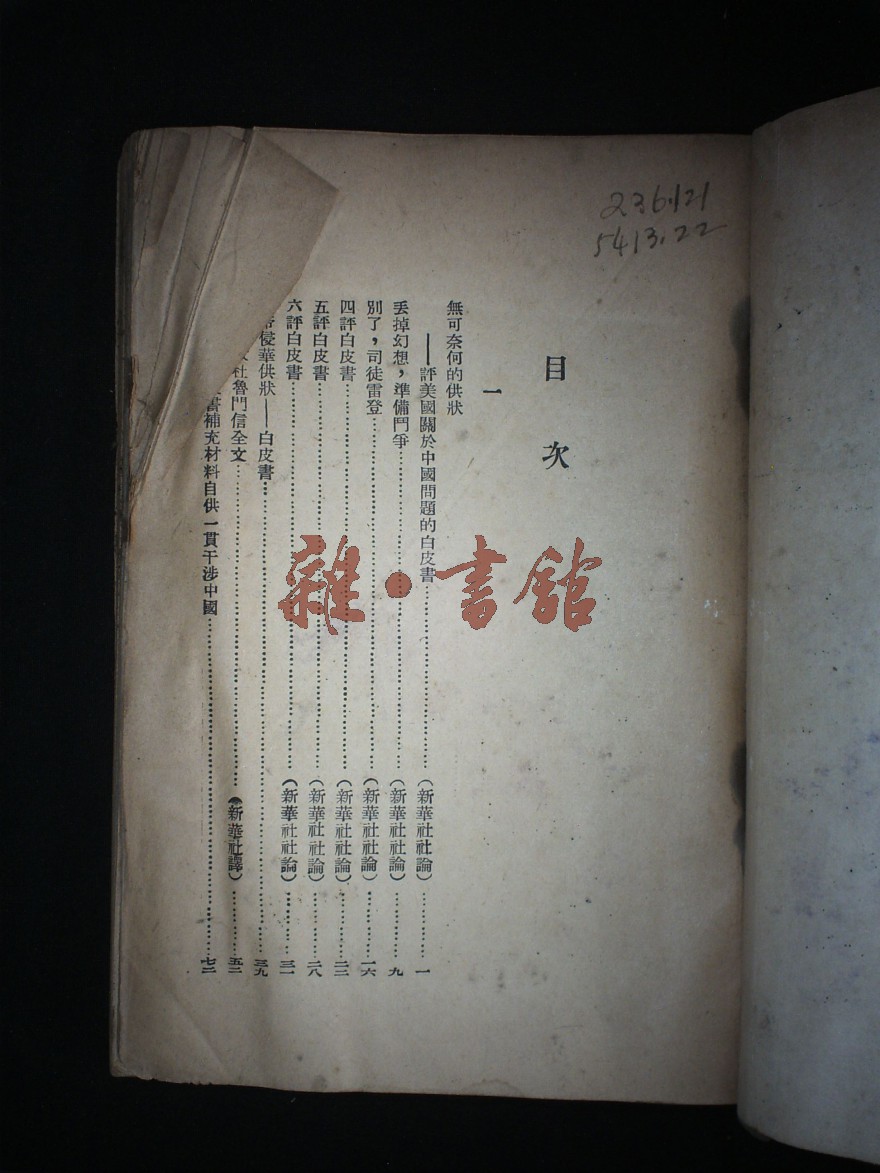 236.121
5413.22
目次
一
無可奈何的供狀
——評美國關於中國問題的白皮書…………(新華社社論)…………一
丟掉幻想，準備鬥爭…………(新華社社論)…………九
別了，司徒雷登…………(新華社社論)…………一六
四評白皮書…………(新華社社論)…………二三
五評白皮書…………(新華社社論)…………二八
六評白皮書…………(新華社社論)…………三一
侵華供狀——白皮書…………三九
杜魯門信全文…………(新華社譯)…………五二
書補充材料自供一貫干涉中國…………七二
雜·書館